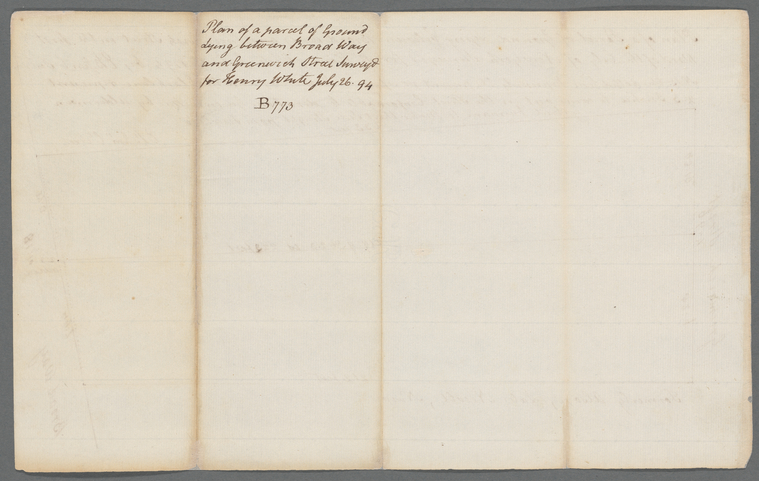 Plan of a parcel of Ground
lying between Broad Way
and Greenwich Street Survey'd
for Henry White July 26. 94
B773